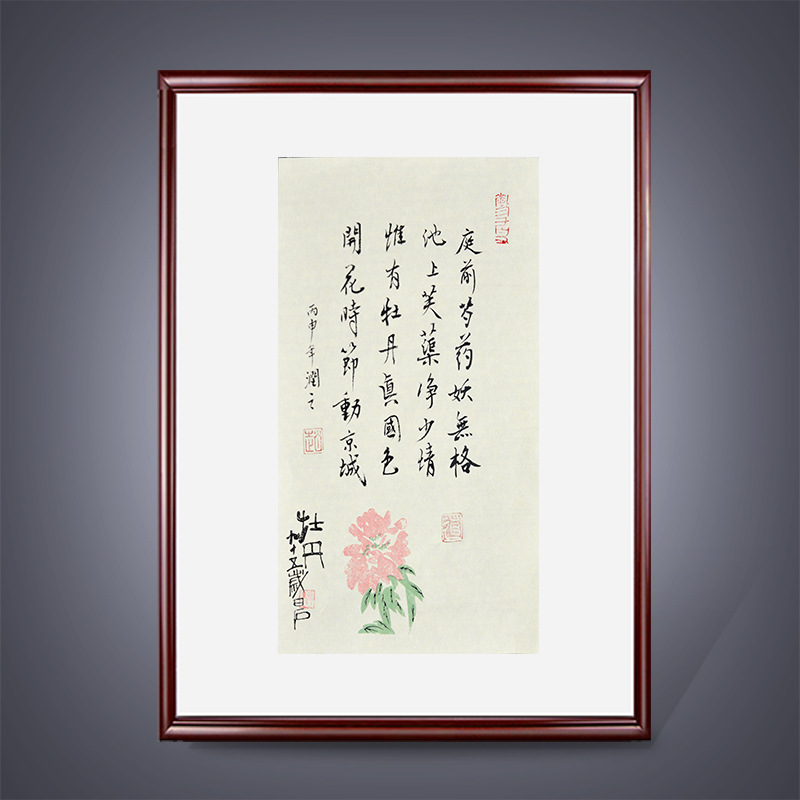 庭前芍药妖無格
池上芙蕖净少情
惟有牡丹眞國色
開花時節動京城
丙申年潤之
牡丹
九十五歲